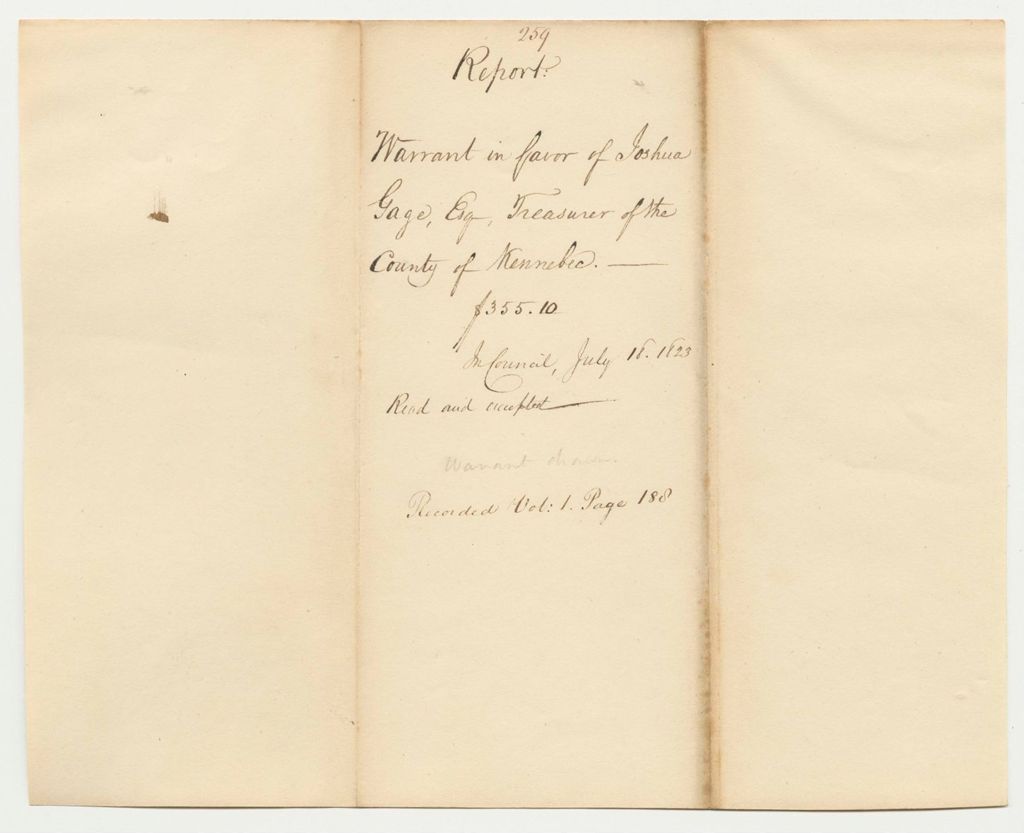 259
Report:
Warrant in favor of Joshua
Gage, Esq, Treasurer of the
County of Kennebec. —
$355.10
In Council, July 18. 1823
Read and accepted
Warrant drawn.
Recorded Vol: 1. Page 188